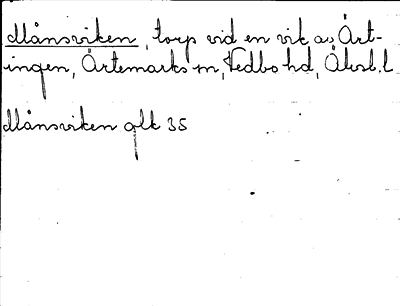 Månsviken, torp vid en vik av Ärt-
ingen, Ärtemarks sn, Vedbo hd, Älvsb. l.
Månsviken glk 35